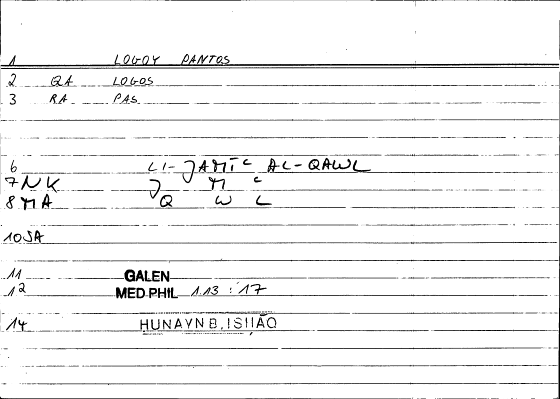 1 LOGOY PANTOS
2 QA LOGOS
3 RA PAS
6 LI-JAMIC AL-QAWL
7 NK J M C
8 MA Q W L
10 JA
11 GALEN
12 MED PHIL 1.13 : 17
14 HUNAYN B. ISHAQ